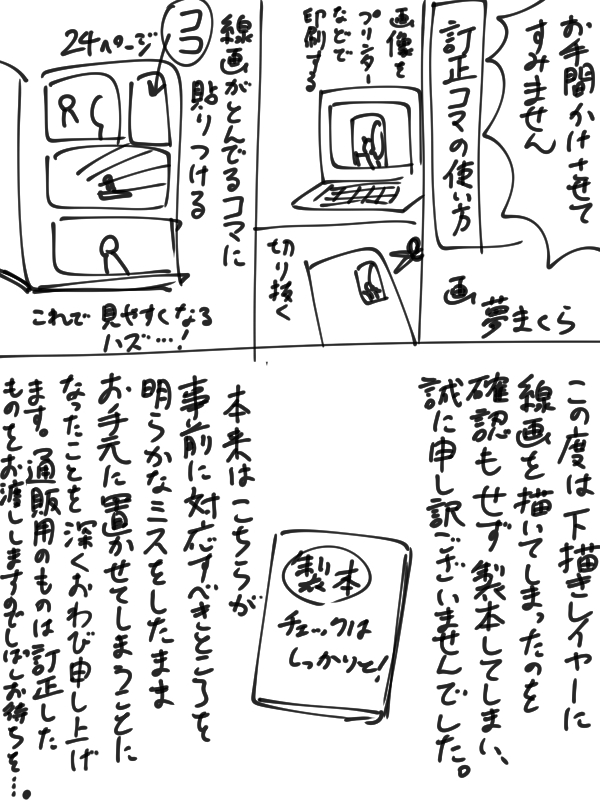 お手間かけさせて
すみません
訂正コマの使い方
画 夢まくら
画像を
プリンター
などで
印刷する
切り抜く
線画がとんでるコマに
貼りつける
ココ
24ページ
これで見やすくなる
ハズ…!
この度は下描きレイヤーに
線画を描いてしまったのを
確認もせず製本してしまい、
誠に申し訳ございませんでした。
製本
チェックは
しっかりと!
本来はこちらが
事前に対応すべきところを
明らかなミスをしたまま
お手元に置かせてしまうことに
なったことを深くおわび申し上げ
ます。通販用のものは訂正した
ものをお渡ししますのでしばしお待ちを…。